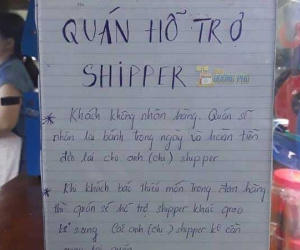 QUÁN HỖ TRỢ
SHIPPER
* Khách không nhận hàng. Quán sẽ
nhận lại bánh trong ngày và hoàn tiền
lại cho anh (chị) shipper
* Khi khách báo thiếu món trong đơn hàng
thì quán sẽ hỗ trợ shipper khai giao
bổ sung các anh (chị) shipper